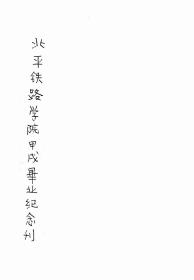 北平铁路学院甲戌畢业纪念刊